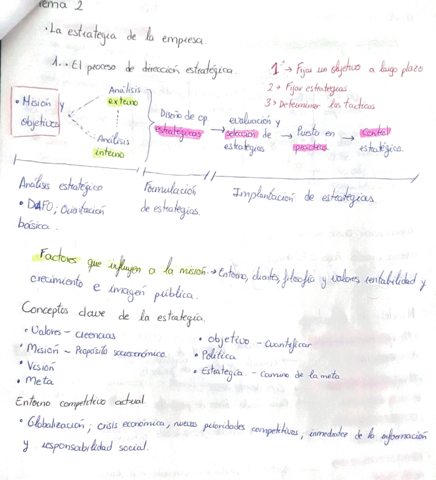 Tema 2
• La estrategia de la empresa.
1. • El proceso de dirección estratégica.
1º → Fijar un objetivo a largo plazo
2 → Fijar estrategias
3 → Determinar las tácticas
• Misión y objetivos
Análisis externo
Análisis interno
Diseño de op estratégicas
evaluación y selección de estrategias
Puesta en práctica
Control estratégico.
Análisis estratégico
• DAFO; Orientación básica.
Formulación de estrategias.
Implantación de estrategias.
Factores que influyen a la misión. → Entorno, clientes, filosofía y valores, rentabilidad y
crecimiento e imagen pública.
Conceptos clave de la estrategia.
• Valores - creencias
• Misión ~ Propósito socioeconómico.
• Visión
• Meta
• Objetivo - Cuantificar
• Política
• Estrategia. - Camino de la meta.
Entorno competitivo actual.
• Globalización; crisis económica, nuevas prioridades competitivas, inmediatez de la información
y responsabilidad social.